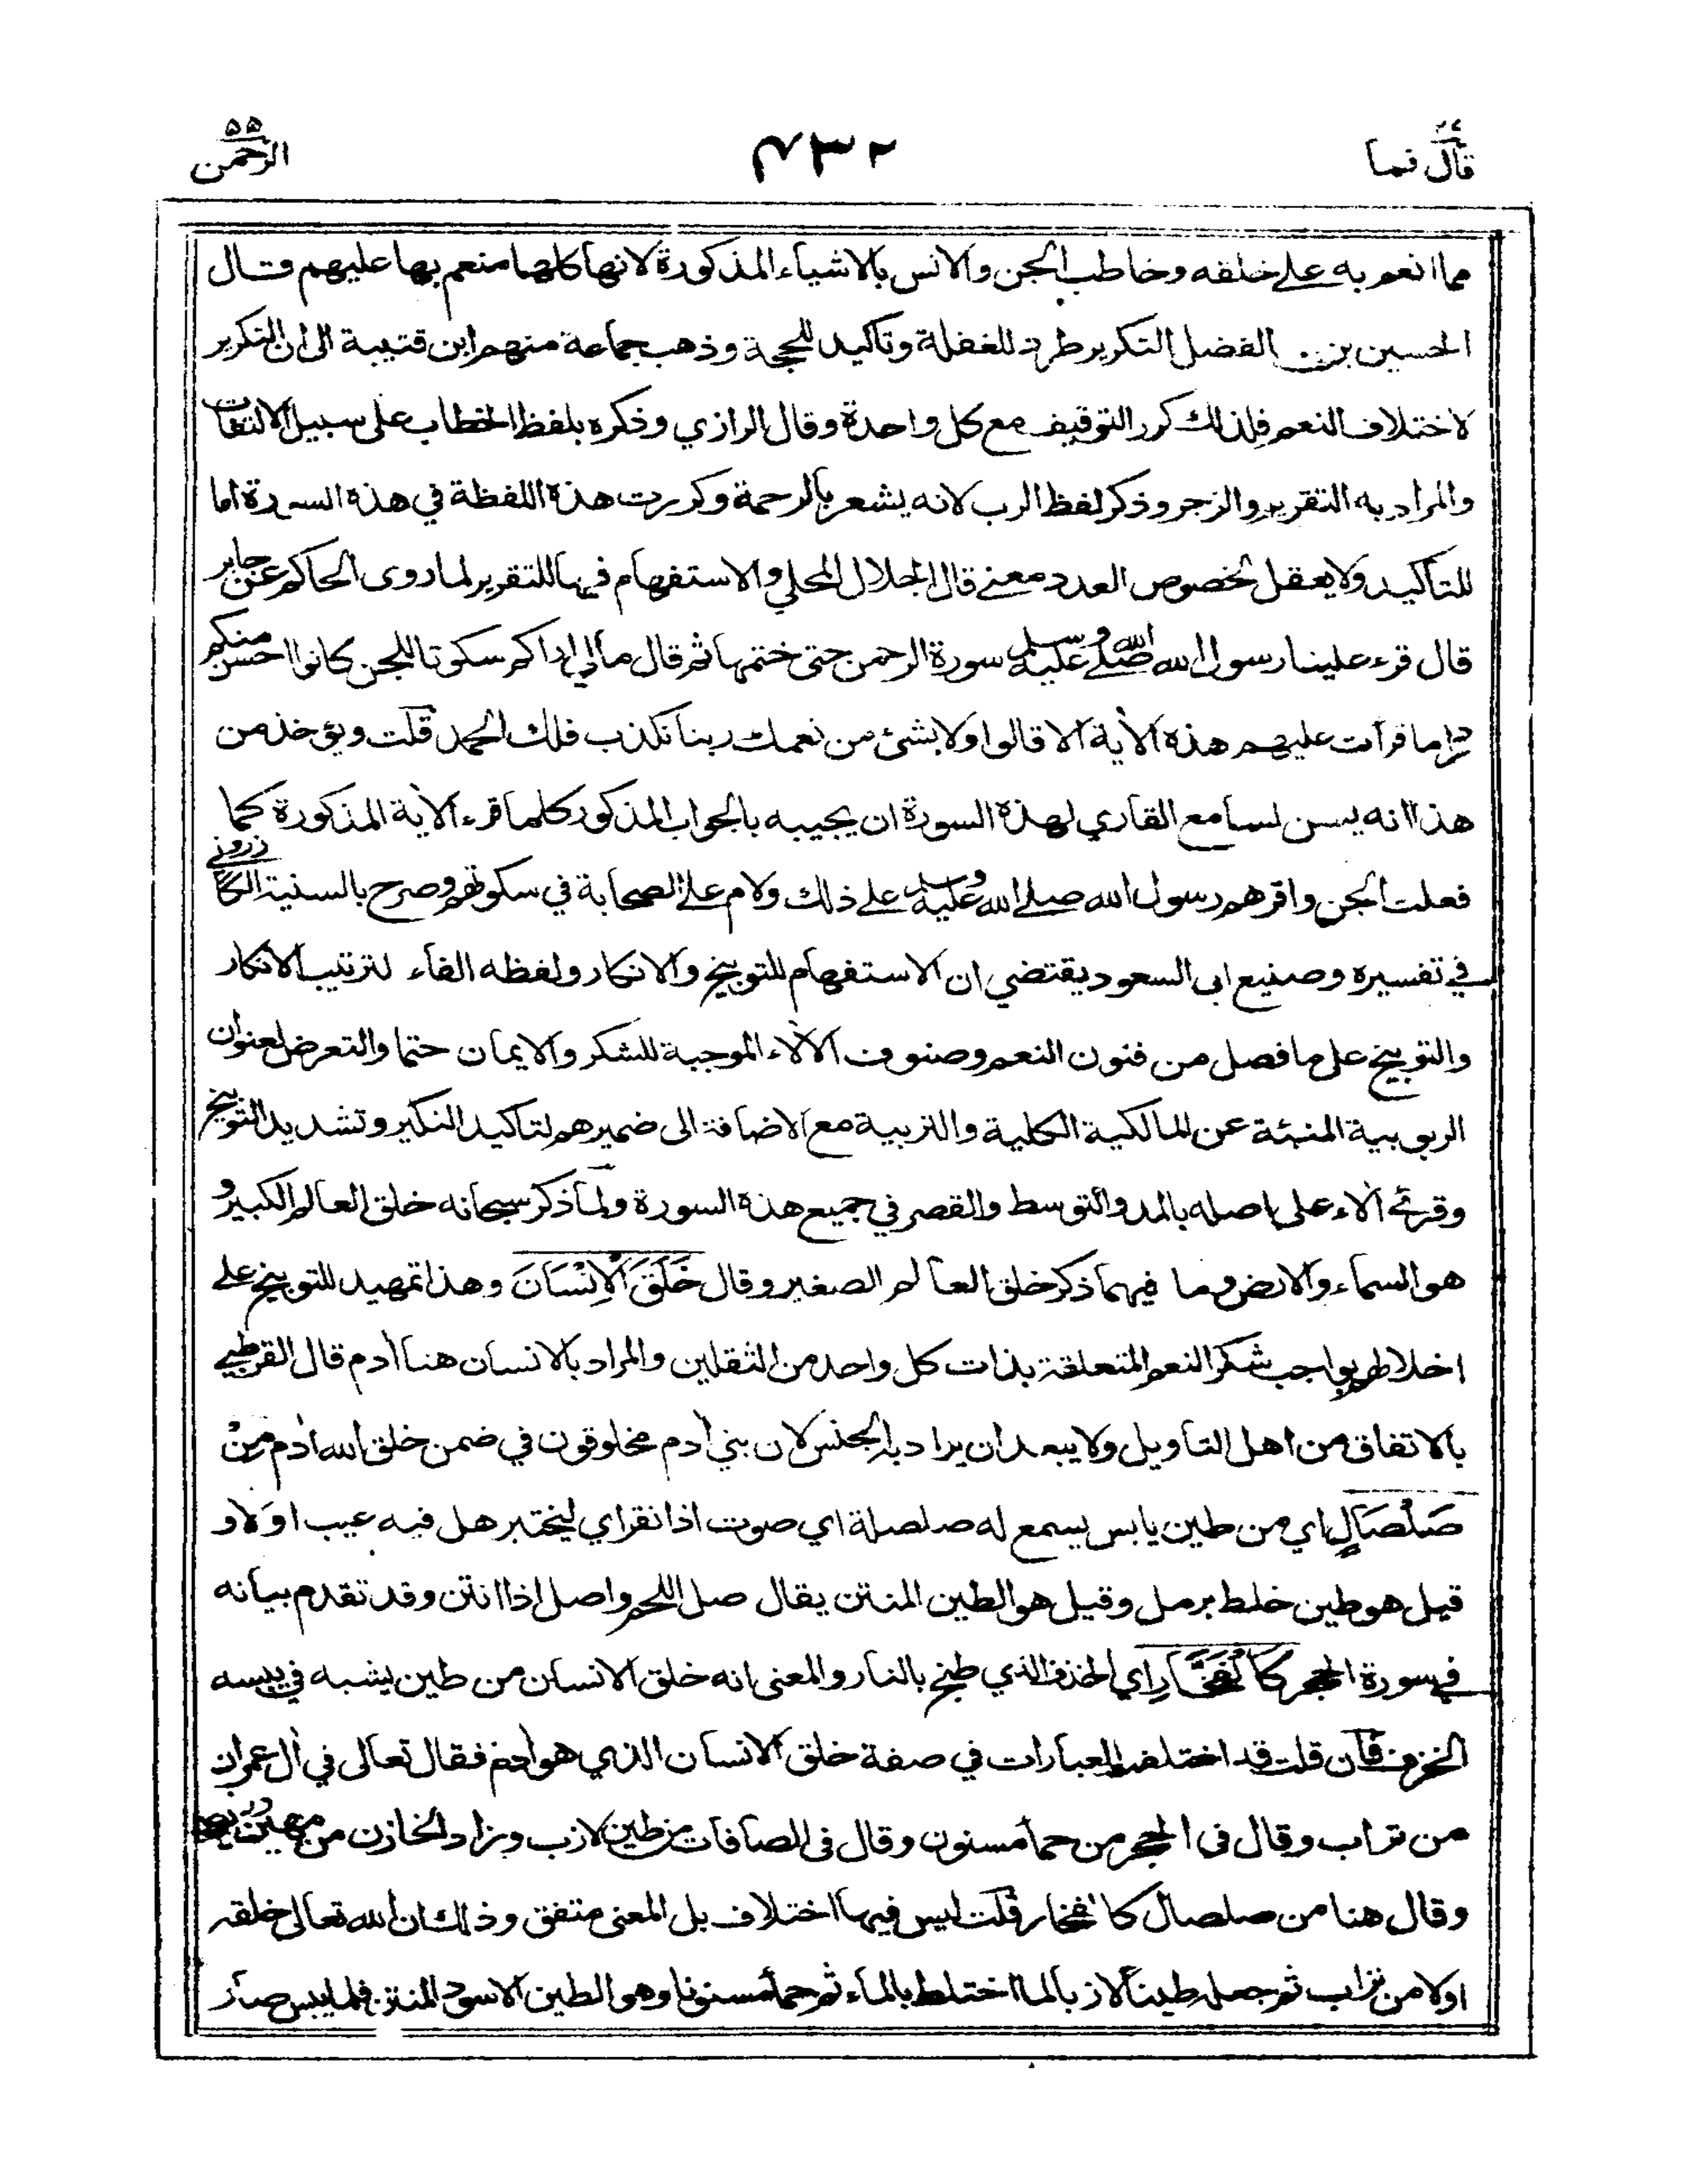 قال فما
٤٣٢
الرحمن ٥٥
مما انعم به على خلقه وخاطب الجن والانس بالاشياء المذكورة لانها كلها منعم بها عليهم قال
الحسين بن الفضل التكرير طرد للغفلة وتاكيد للحجة وذهب جماعة منهم ابن قتيبة الى ان التكرير
لاختلاف النعم فلذلك كرر التوقيف مع كل واحدة وقال الرازي وذكره بلفظ الخطاب على سبيل الالتفات
والمراد به التقرير والزجر وذكر لفظ الرب لانه يشعر بالرحمة وكررت هذه اللفظة في هذه السورة اما
للتاكيد ولا يعقل لخصوص العدد معنى قال الجلال المحلي والاستفهام فيها للتقرير لما روى الحاكم عن جابر
قال قرء علينا رسول الله صلى الله عليه وسلم سورة الرحمن حتى ختمها ثم قال مالي اراكم سكوتا للجن كانوا احسن منكم
ردا ما قرأت عليهم هذه الأية الا قالوا ولا بشئ من نعمك ربنا نكذب فلك الحمد قلت ويؤخذ من
هذا انه يسن لسامع القاري لهذه السورة ان يجيبه بالجواب المذكور كلما قرء الأية المذكورة كما
فعلت الجن واقرهم رسول الله صلى الله عليه وسلم على ذلك ولام على الصحابة في سكوتهم وصرح بالسنية الكازروني
في تفسيره وصنيع ابى السعود يقتضي ان الاستفهام للتوبيخ والانكار ولفظه الفاء لترتيب الانكار
والتوبيخ على ما فصل من فنون النعم وصنوف الألاء الموجبة للشكر والايمان حتما والتعرض لعنوان
الربوبية المنبئة عن المالكية الكلية والتربية مع الاضافة الى ضميرهم لتاكيد النكير وتشديد التوبيخ
وقرئ ألاء على اصله بالمد والتوسط والقصر في جميع هذه السورة ولما ذكر سبحانه خلق العالم الكبير و
هو السماء والارض وما فيهما ذكر خلق العالم الصغير وقال خَلَقَ الْاِنْسَانَ وهذا تمهيد للتوبيخ على
اخلالهم بواجب شكر النعم المتعلقة بذات كل واحد من الثقلين والمراد بالانسان هنا أدم قال القرطبي
بالاتفاق من اهل التاويل ولا يبعد ان يراد به الجنس لان بني أدم مخلوقون في ضمن خلق الله أدم مِنْ
صَلْصَالٍ اي من طين يابس يسمع له صلصلة اي صوت اذا نقر اي ليختبر هل فيه عيب اولا و
قيل هو طين خلط برمل وقيل هو الطين المنتن يقال صل اللحم واصل اذا انتن وقد تقدم بيانه
في سورة الحجر كَالْفَخَّارِ اي الخذف الذي طبخ بالنار والمعنى انه خلق الانسان من طين يشبه في يبسه
الخزف فان قلت قد اختلف العبارات في صفة خلق الانسان الذي هو أدم فقال تعالى في أل عمران
من تراب وقال فى الحجر من حمأ مسنون وقال فى الصافات من طين لازب وزاد الخازن من ماء مهين
وقال هنا من صلصال كالفخار قلت ليس فيها اختلاف بل المعنى متفق وذلك ان الله تعالى خلقه
اولا من تراب ثم جعله طينا لازبا لما اختلط بالماء ثم حمأ مسنونا وهو الطين الاسود المنتن فلما يبس صار